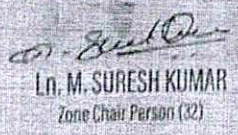 Ln. M. SURESH KUMAR
Zone Chair Person (32)